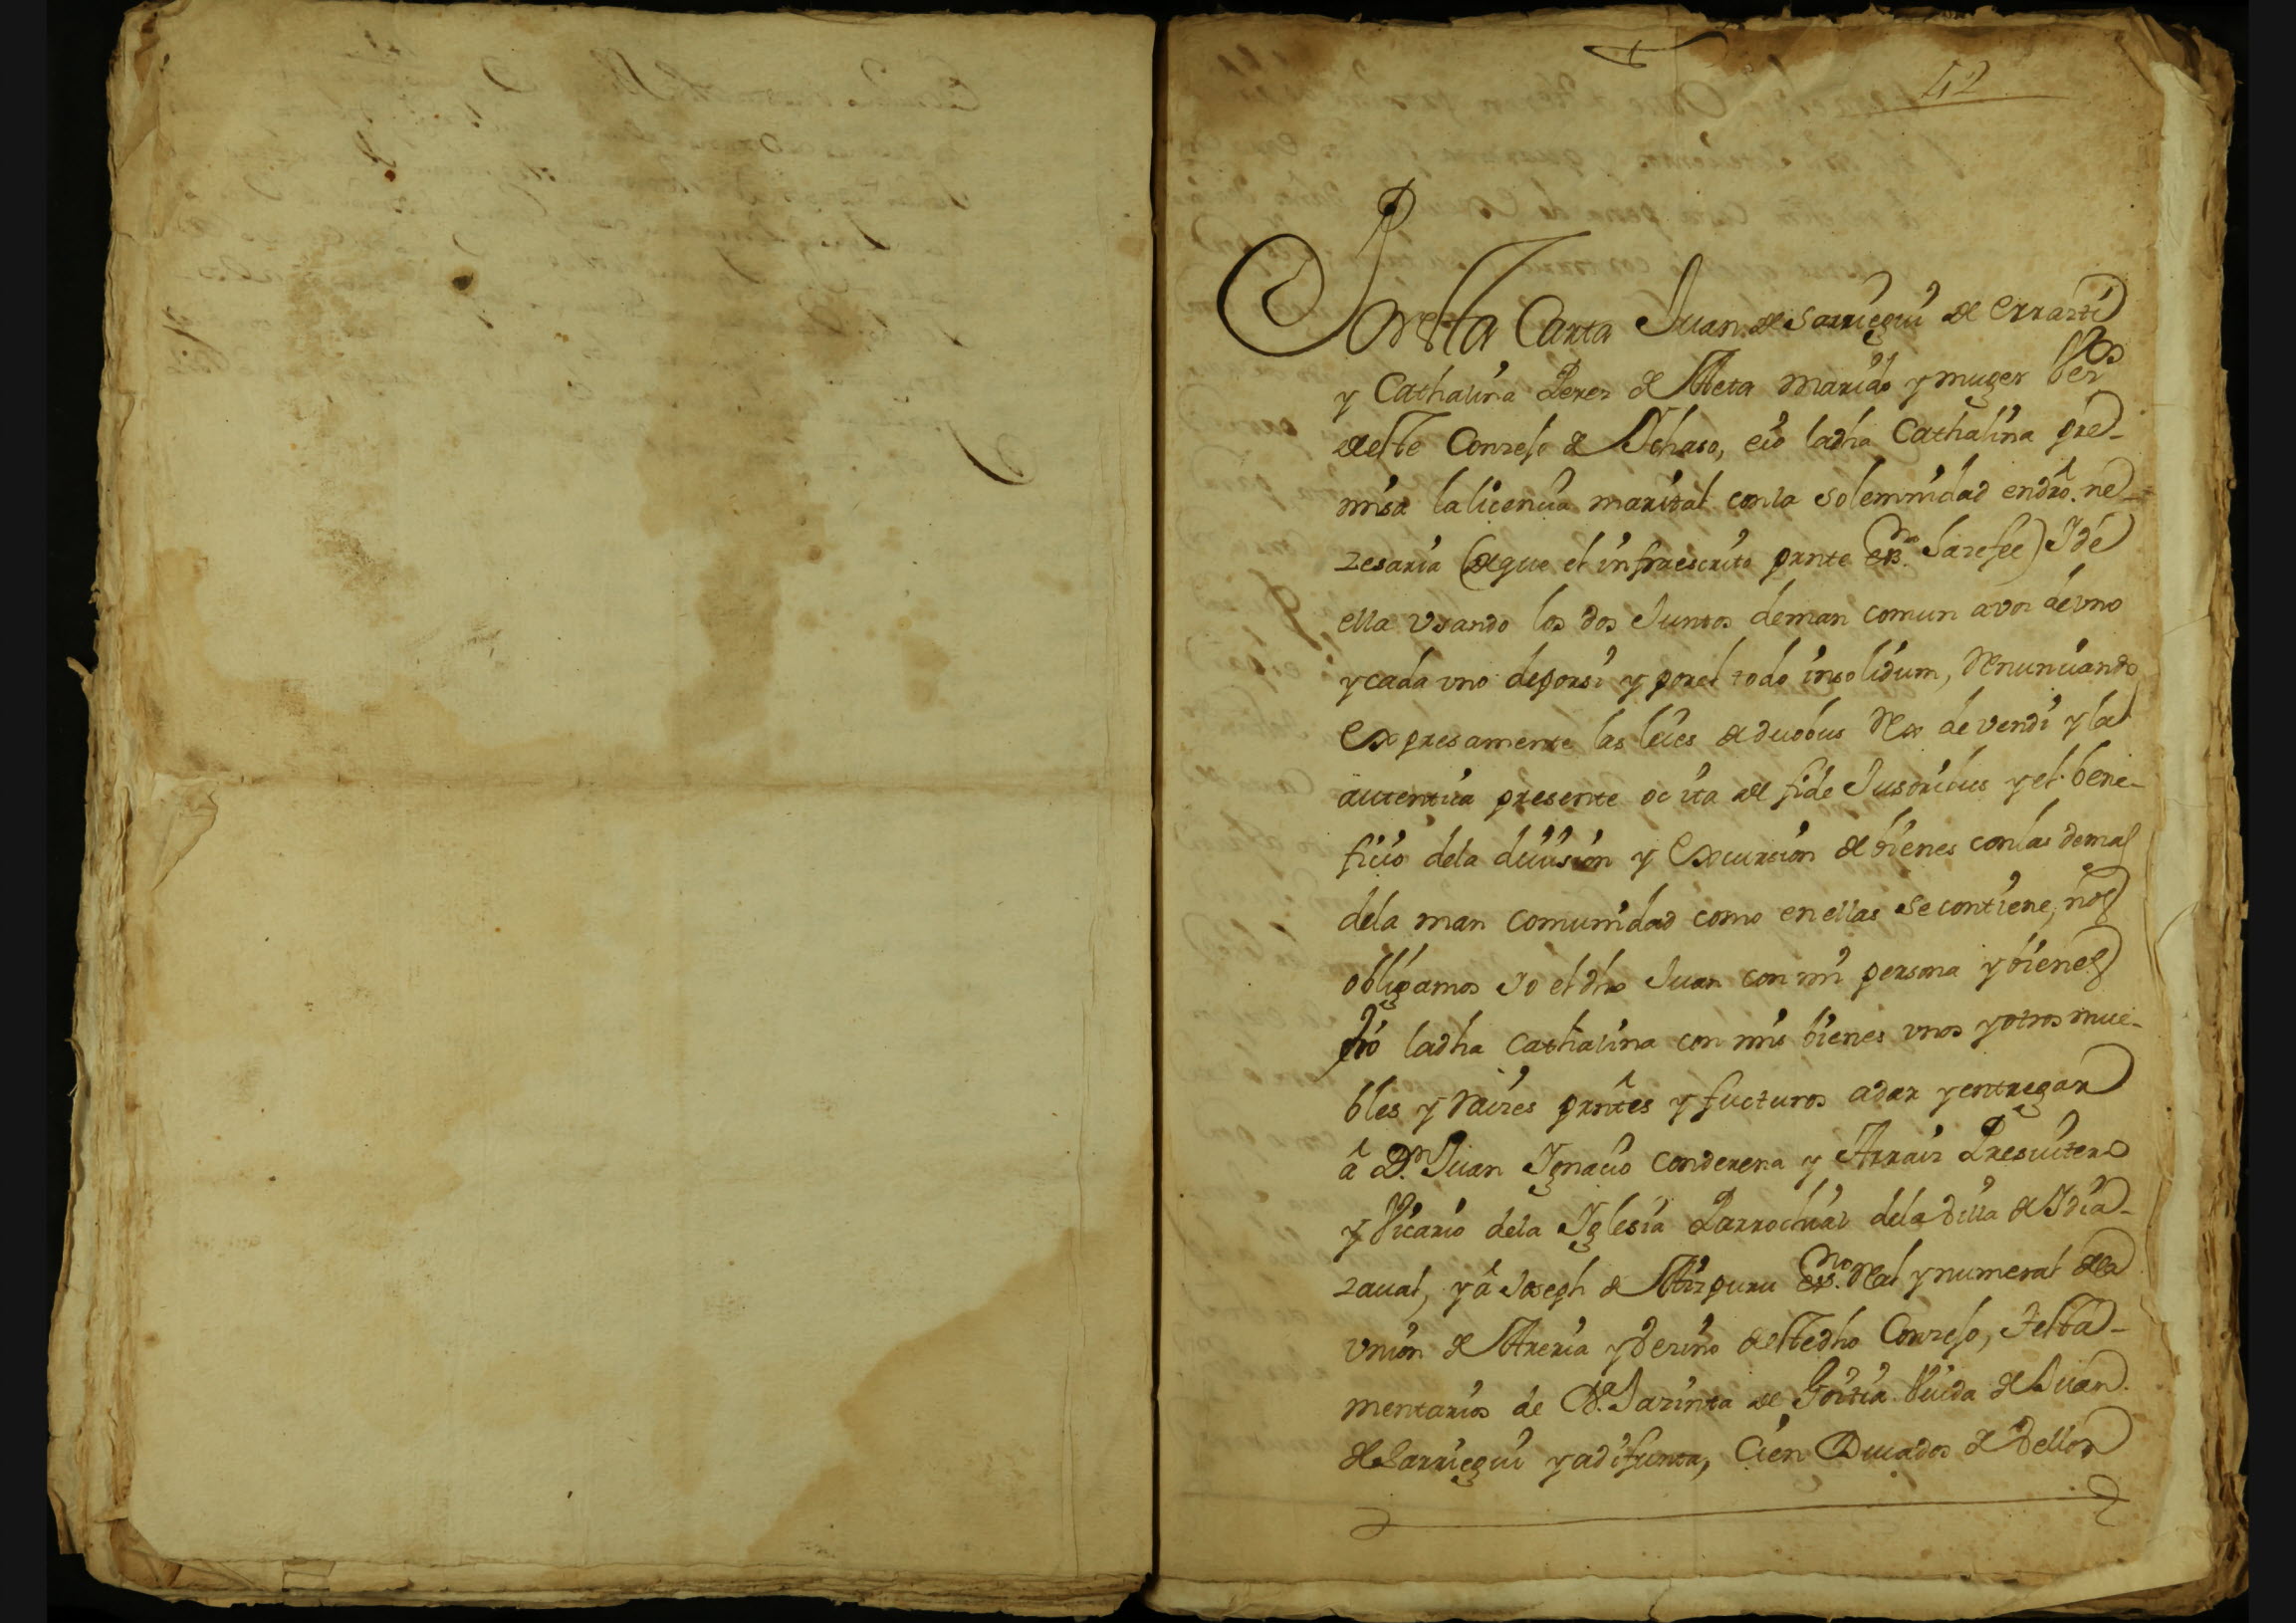 42
Por esta Carta Juan de Sarriegui de errazti
y Cathalina Perez de Aleta marido y muger vez.os
de este Conzejo de Ychaso, e io la dha Cathalina pre-
missa la licencia marital con la solemnidad en dro. ne-
zesaria (de que el infraescrito prnte es.no da ze fee) I de
ella vsando los dos Juntos de man comun a voz de vno
y cada vno de por si y por el todo insolidum, Renunciando
expresamente las leies de duobus Rex de vendi y la
autentica presente oc ita de fide Jusoribus y el bene-
ficio dela diuision y excurcion de bienes con las demas
dela man comunidad como en ellas se contiene, nos
obligamos Io el dho Juan con mi persona y bienes
Io la dha Cathalina con mis bienes vnos y otros mue-
bles y raizes prntes y fucturos a dar y entregar
â D.n Juan Ygnacio Conderena y Arraiz Presuitero
y Vicario dela Yglesia Parrochial dela Villa de Idia-
zaual, y â Joseph de Aizpuru es.no Real y numeral dela
vnion de Areria y Vezino de este dho Conzejo, testa-
mentarios de D.a Jazinta de Goitia Viuda de Juan
de Sarriegui ya difunta, Cien Ducados de Vellon